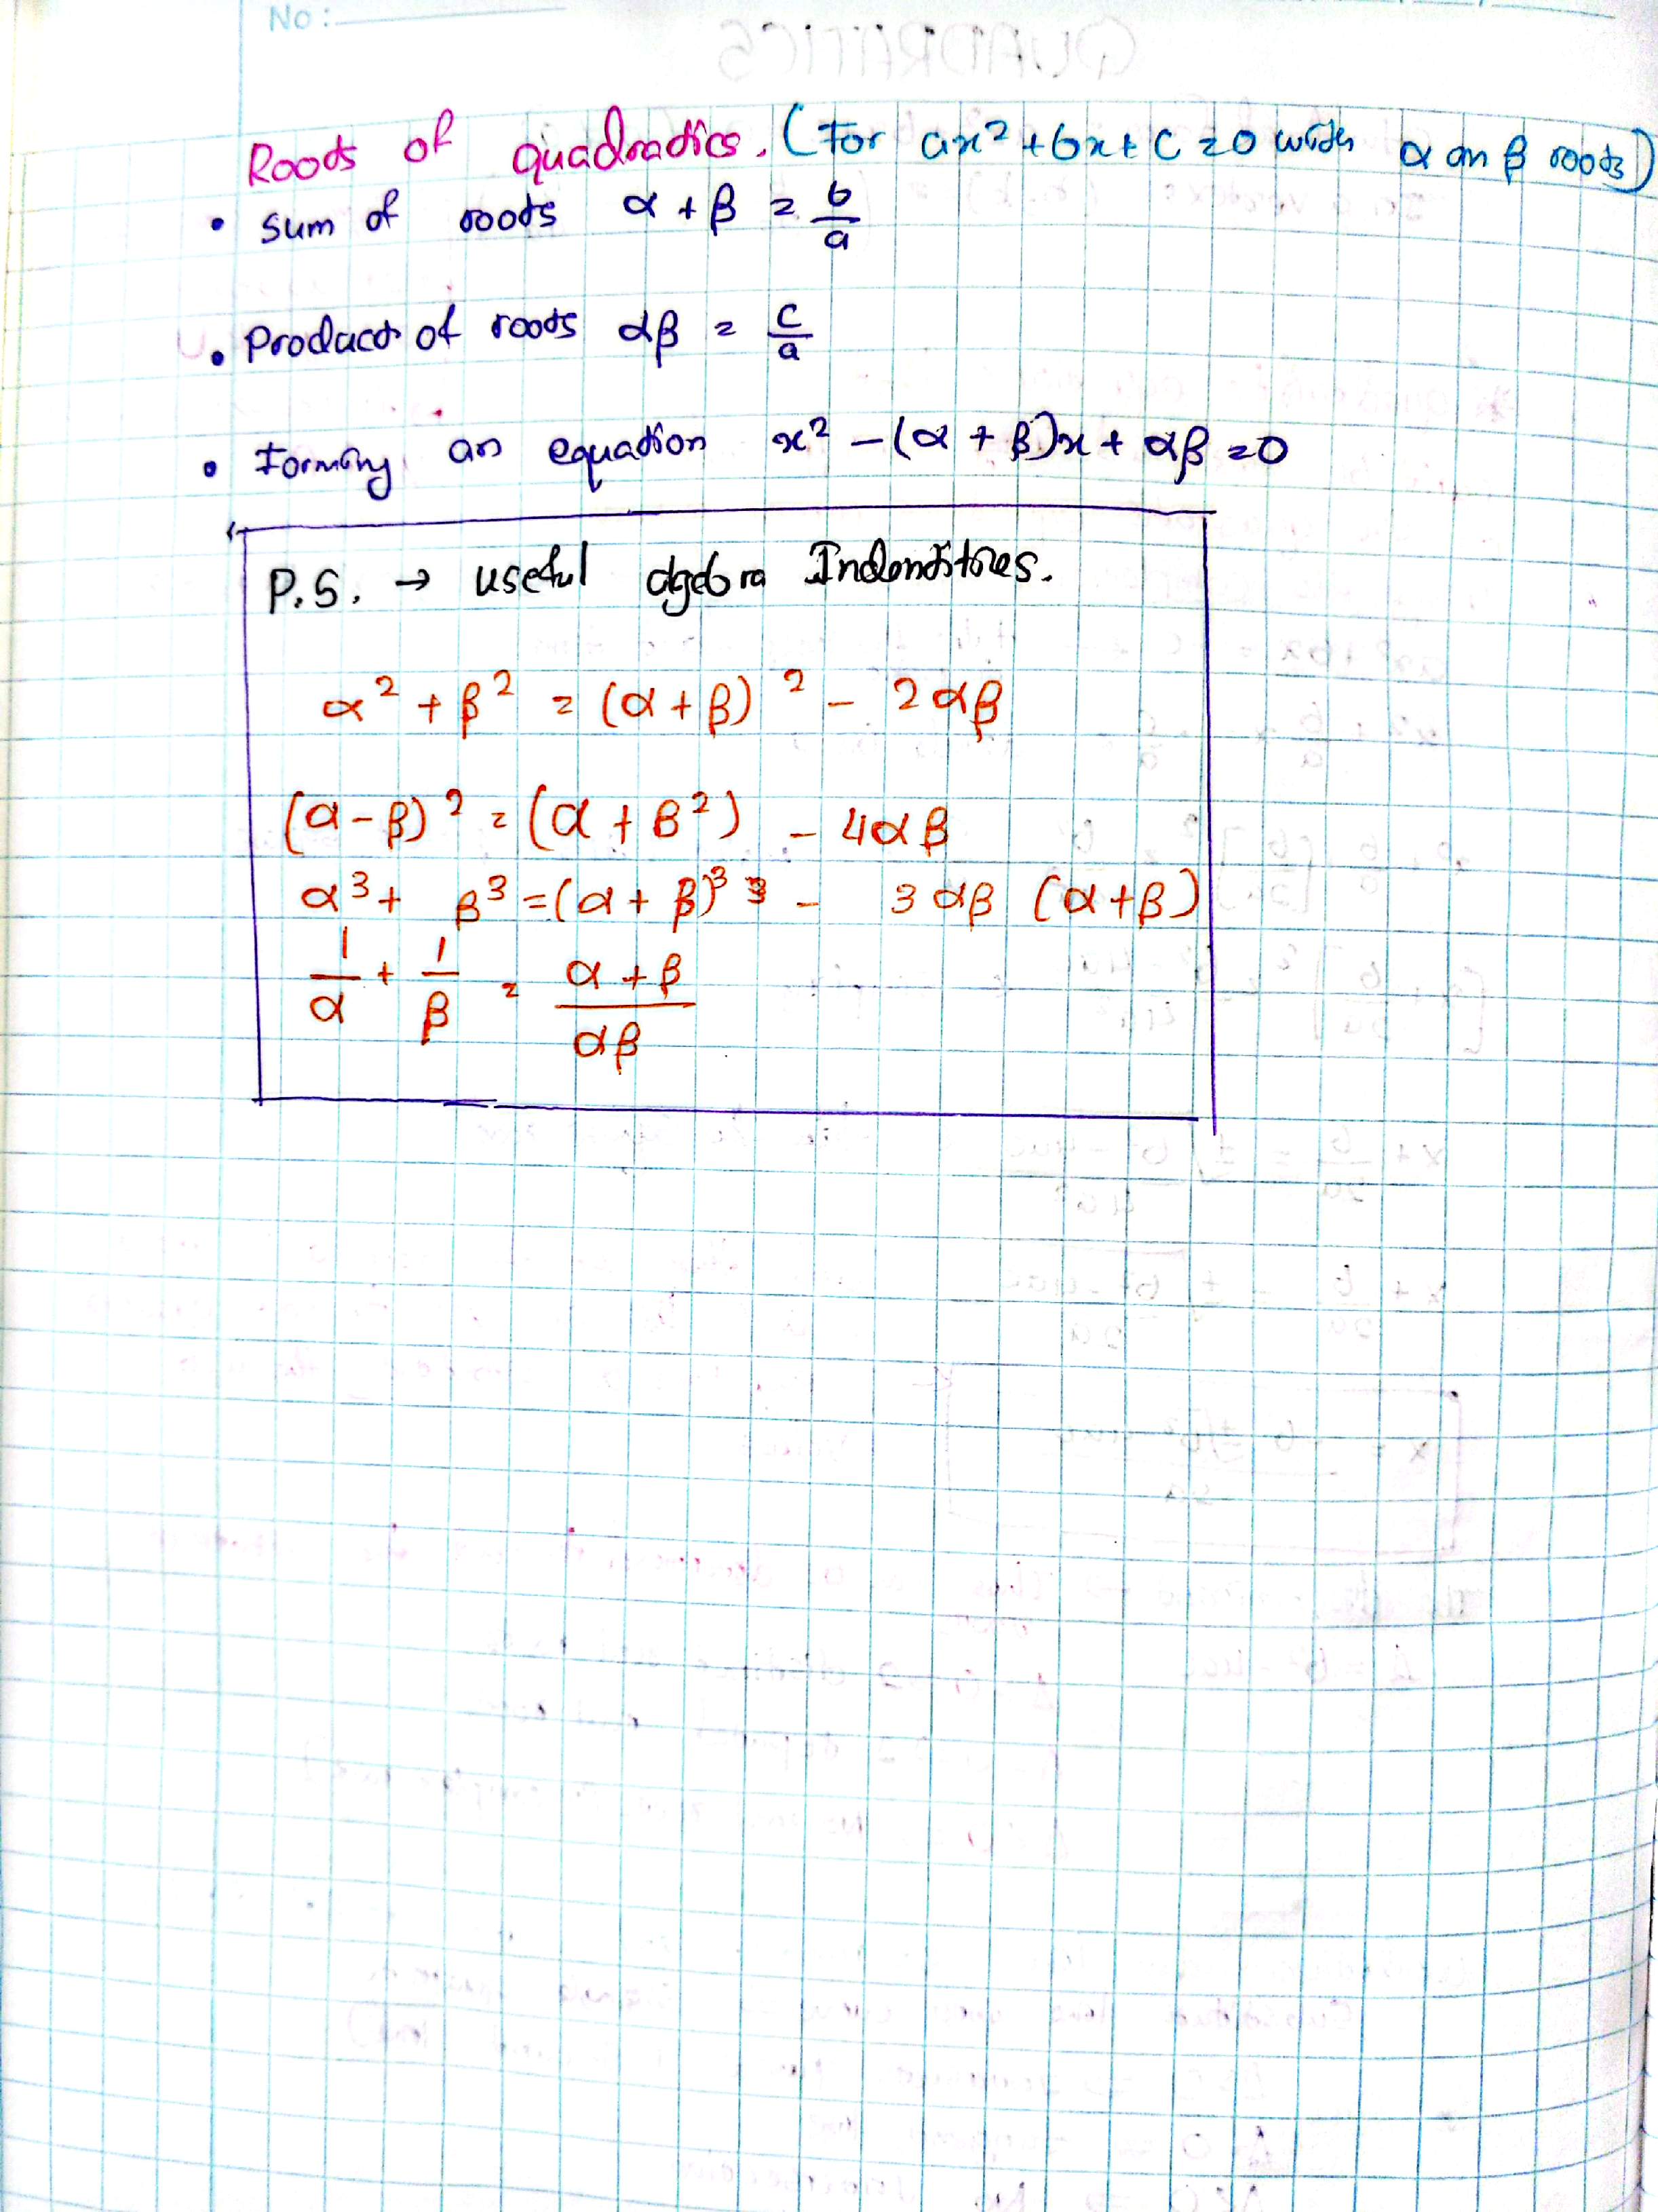 No:
Roots of quadradics. (For ax² + bx + c = 0 with α an β roots)
• sum of roots α + β = b/a
• Product of roots αβ = c/a
• Forming an equation x² – (α + β)x + αβ = 0
P.S. → useful algebra
α² + β² = (α + β)² – 2αβ
(α – β)² = (α + β²) – 4αβ
α³ + β³ = (α + β)³ – 3αβ (α + β)
1/α + 1/β = α + β / αβ